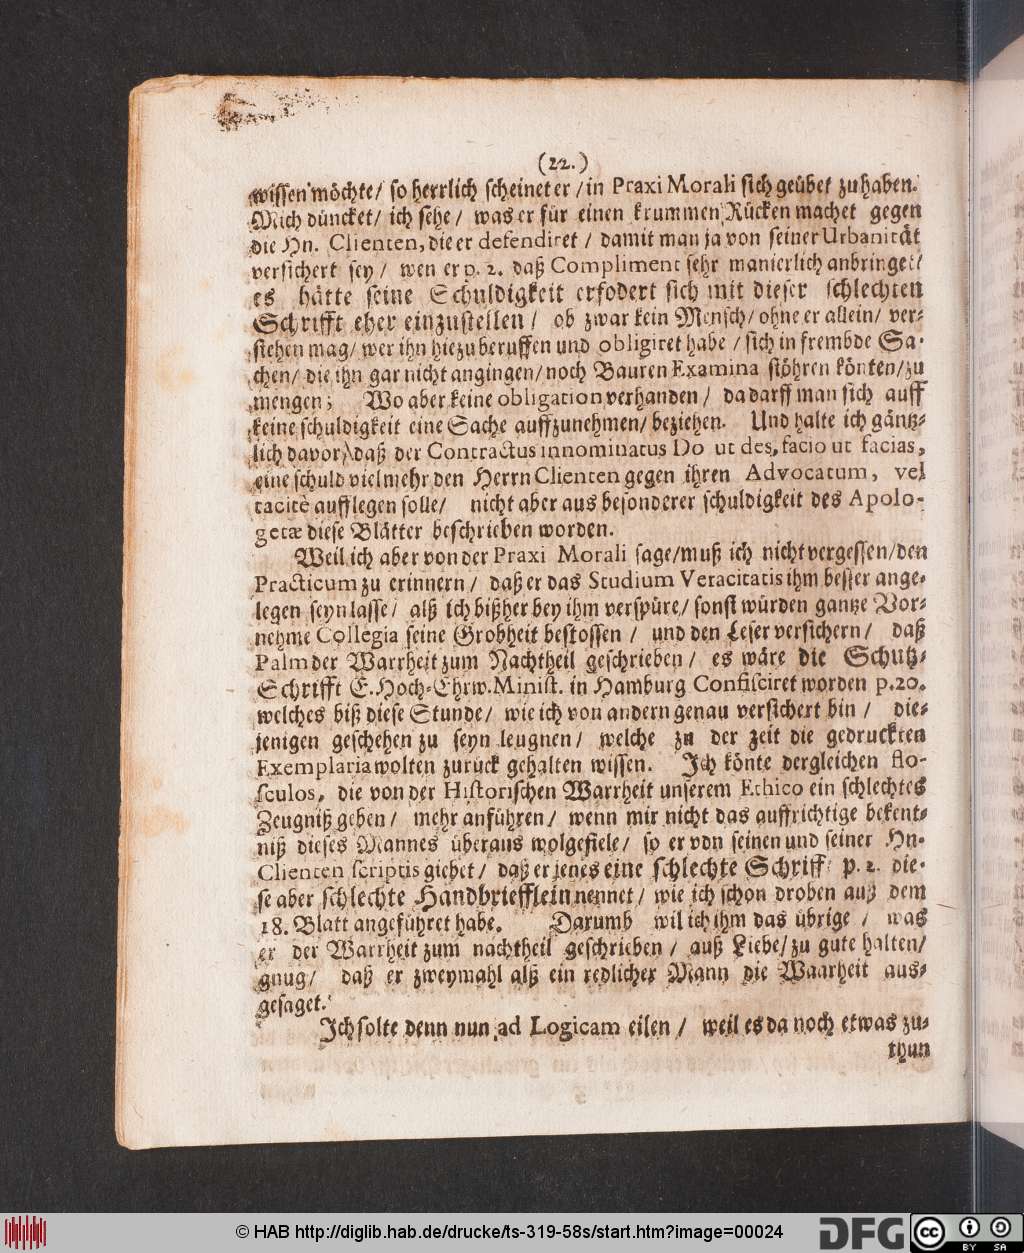 (22.)
wissen möchte/ so herrlich scheinet er / in Praxi Morali sich geübet zu haben.
Mich düncket/ ich sehe/ was er für einen krummen Rücken machet gegen
die Hn. Clienten, die er defendiret / damit man ja von seiner Urbanität
versichert sey / wen er p. 2. daß Compliment sehr manierlich anbringet/
es hätte seine Schuldigkeit erfodert sich mit dieser schlechten
Schrifft eher einzustellen / ob zwar kein Mensch/ ohne er allein/ ver-
stehen mag/ wer ihn hiezu beruffen und obligiret habe / sich in frembde Sa-
chen/ die ihn gar nicht angingen/ noch Bauren Examina stöhren könten/ zu
mengen; Wo aber keine obligation verhanden / da darff man sich auff
keine schuldigkeit eine Sache auffzunehmen/ beziehen. Und halte ich gäntz-
lich davor/ daß der Contractus innominatus Do ut des, facio ut facias,
eine schuld vielmehr den Herrn Clienten gegen ihren Advocatum, vel
tacitè aufflegen solle/ nicht aber aus besonderer schuldigkeit des Apolo-
getæ diese Blätter beschrieben worden.
Weil ich aber von der Praxi Morali sage/ muß ich nicht vergessen/ den
Practicum zu erinnern / daß er das Studium Veracitatis ihm besser ange-
legen seyn lasse/ alß ich bißher bey ihm verspüre/ sonst würden gantze Vor-
nehme Collegia seine Grobheit bestossen / und den Leser versichern/ daß
Palm der Warrheit zum Nachtheil geschrieben / es wäre die Schutz-
Schrifft E. Hoch-Ehrw. Minist. in Hamburg Confisciret worden p. 20.
welches biß diese Stunde/ wie ich von andern genau versichert bin / die-
jenigen geschehen zu seyn leugnen/ welche zu der zeit die gedruckten
Exemplaria wolten zurück gehalten wissen. Ich könte dergleichen flo-
sculos, die von der Historischen Warrheit unserem Ethico ein schlechtes
Zeugniß geben/ mehr anführen/ wenn mir nicht das auffrichtige bekent-
niß dieses Mannes überaus wolgefiele/ so er von seinen und seiner Hn.
Clienten scriptis giebet/ daß er jenes eine schlechte Schrifft p. 2. die-
se aber schlechte Handbriefflein nennet/ wie ich schon droben auß dem
18. Blatt angeführet habe. Darumb wil ich ihm das übrige / was
er der Warrheit zum nachtheil geschrieben / auß Liebe/ zu gute halten/
gnug/ daß er zweymahl alß ein redlicher Mann die Waarheit aus-
gesaget.
Ich solte denn nun ad Logicam eilen / weil es da noch etwas zu-
thun
© HAB http://diglib.hab.de/drucke/ts-319-58s/start.htm?image=00024
DFG
cc BY SA